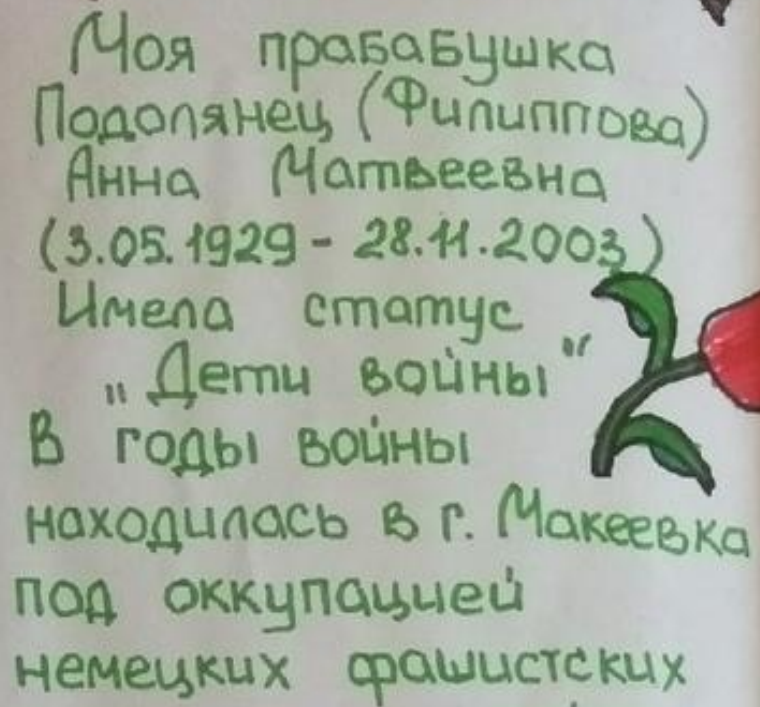 Моя прабабушка
Подолянец (Филиппова)
Анна Матвеевна
(3.05.1929 - 28.11.2003)
Имела статус
„Дети войны"
В годы войны
находилась в г. Макеевка
под оккупацией
немецких фашистских